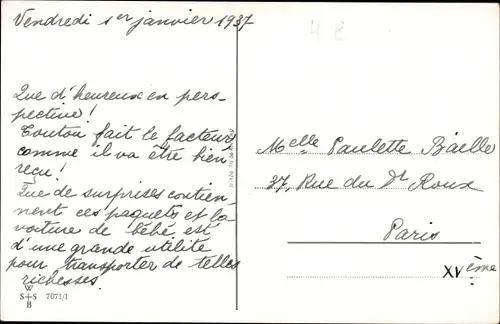 Vendredi 1er janvier 1937
4 €
Que d'heureux en pers-
pective!
Toutou fait le facteur
comme il va être bien
reçu!
Que de surprises contien-
nent ces paquets et la
voiture de bébé est
d'une grande utilité
pour transporter de telles
richesses.
W
S+S 7071/1
B
Melle Paulette Baëlle
37, Rue du Dr Roux
Paris
XVème